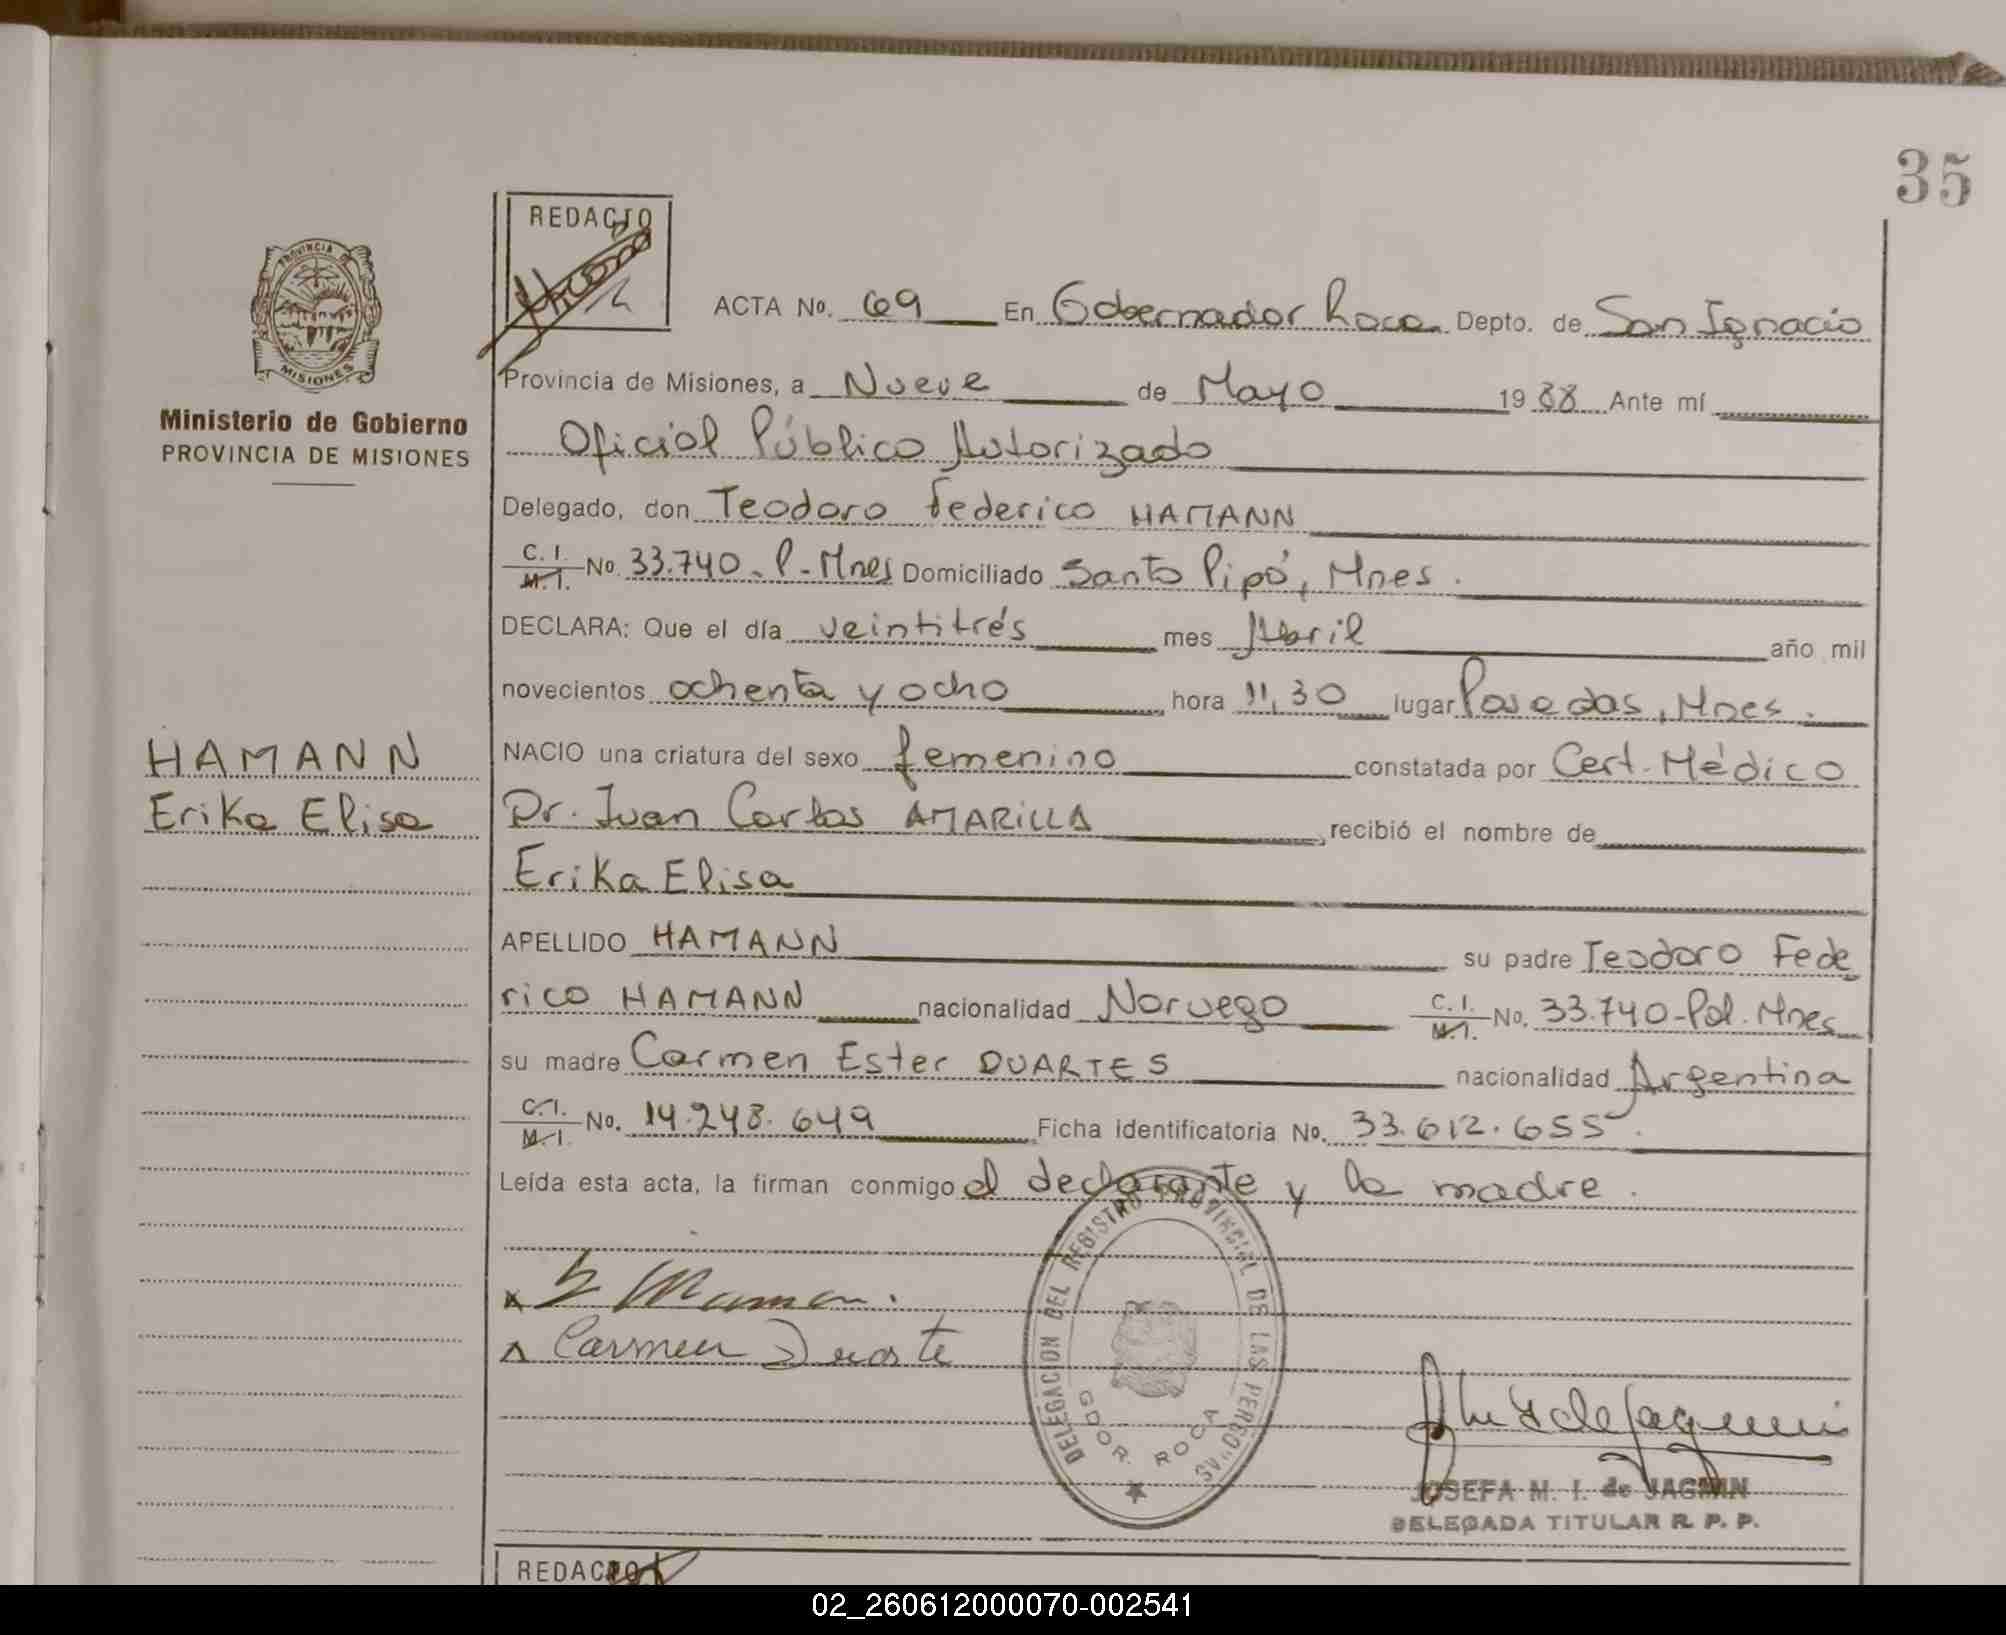 35
REDACTO
PROVINCIA DE
MISIONES
Ministerio de Gobierno
PROVINCIA DE MISIONES
ACTA No. 69 En Gobernador Roca Depto. de San Ignacio
Provincia de Misiones, a Nueve de Mayo 1988 Ante mí
Oficial Público Autorizado
Delegado, don Teodoro Federico HAMANN
C. I. M. I. No. 33.740. P. Mnes Domiciliado Santo Pipó, Mnes.
DECLARA: Que el día veintitrés mes Abril año mil
novecientos ochenta y ocho hora 11,30 lugar Posadas, Mnes.
HAMANN
Erika Elisa
NACIO una criatura del sexo femenino constatada por Cert. Médico
Dr. Juan Carlos AMARILLA, recibió el nombre de
Erika Elisa
APELLIDO HAMANN su padre Teodoro Fede
rico HAMANN nacionalidad Noruego C. I. M. I. No. 33.740-Pol. Mnes
su madre Carmen Ester DUARTES nacionalidad Argentina
C. I. M. I. No. 14.248.649 Ficha identificatoria No. 33.612.655.
Leída esta acta, la firman conmigo el declarante y la madre.
x
Carmen Duarte
DELEGACION DEL REGISTRO PROVINCIAL DE LAS PERSONAS
GDOR. ROCA
JOSEFA M. I. de JAGMIN
DELEGADA TITULAR R. P. P.
REDACTO
02_260612000070-002541